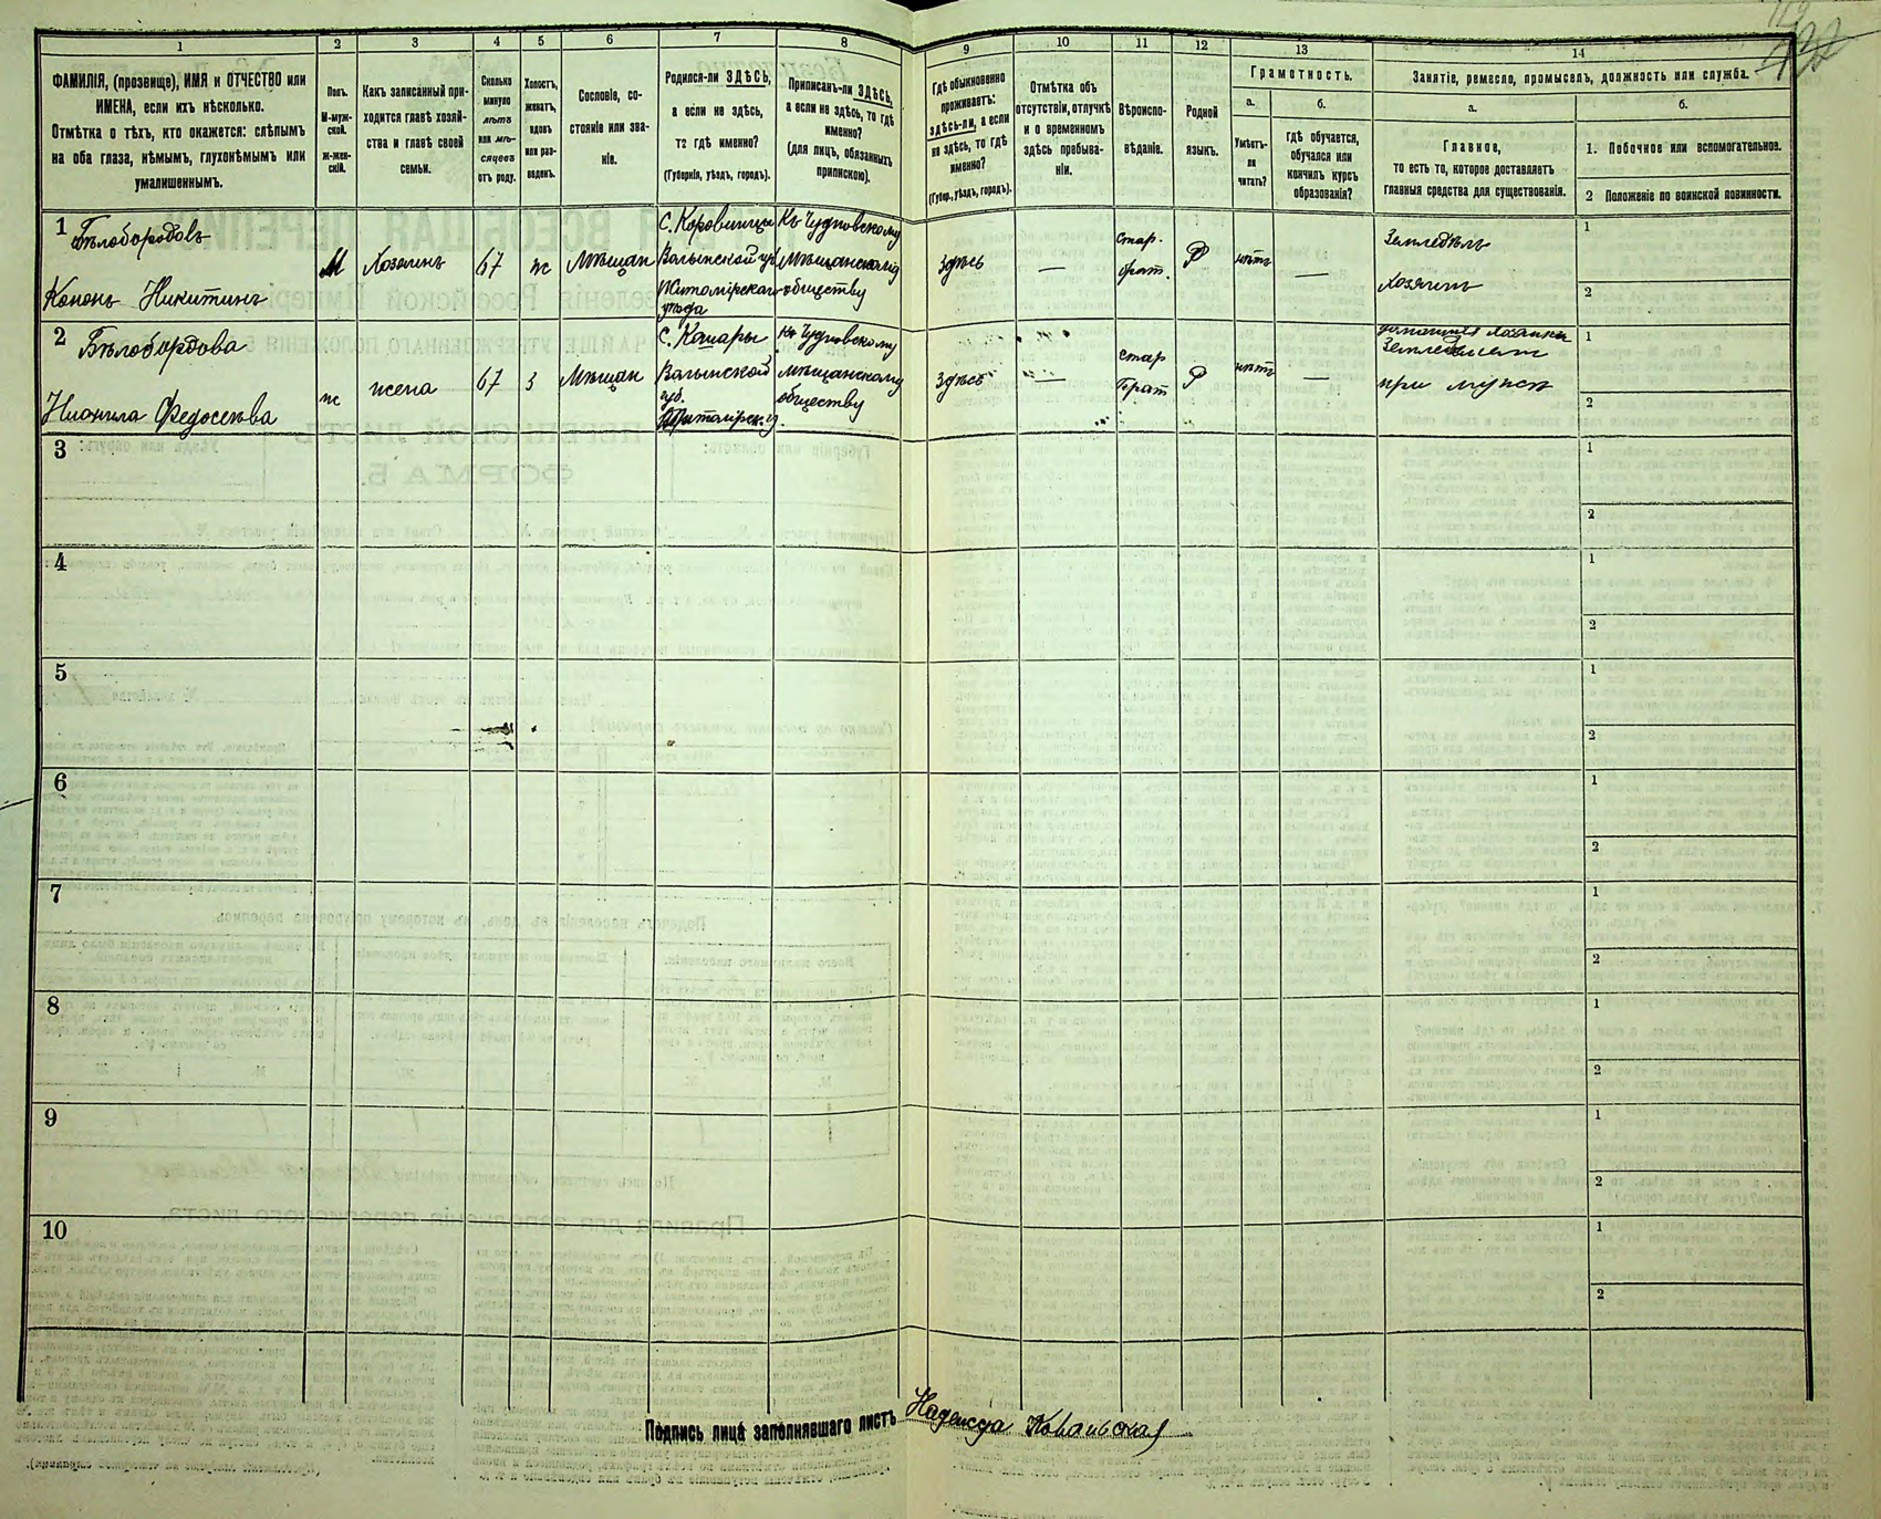 119
122
1
2
3
4
5
6
7
8
9
10
11
12
13
14
ФАМИЛІЯ, (прозвище), ИМЯ и ОТЧЕСТВО или
ИМЕНА, если ихъ нѣсколько.
Отмѣтка о тѣхъ, кто окажется: слѣпымъ
на оба глаза, нѣмымъ, глухонѣмымъ или
умалишеннымъ.
Полъ.
М-муж-
ской.
Ж-жен-
скій.
Какъ записанный при-
ходится главѣ хозяй-
ства и главѣ своей
семьи.
Сколько
минуло
лѣтъ
или мѣ-
сяцевъ
отъ роду.
Холостъ,
женатъ,
вдовъ
или раз-
веденъ.
Сословіе, со-
стояніе или зва-
ніе.
Родился-ли ЗДѢСЬ,
а если не здѣсь,
то гдѣ именно?
(Губернія, уѣздъ, городъ).
Приписанъ-ли ЗДѢСЬ,
а если не здѣсь, то гдѣ
именно?
(для лицъ, обязанныхъ
припискою).
Гдѣ обыкновенно
проживаетъ:
здѣсь-ли, а если
не здѣсь, то гдѣ
именно?
(Губер., уѣздъ, городъ).
Отмѣтка объ
отсутствіи, отлучкѣ
и о временномъ
здѣсь пребыва-
ніи.
Вѣроиспо-
вѣданіе.
Родной
языкъ.
Грамотность.
а.
Умѣетъ-
ли
читать?
б.
Гдѣ обучается,
обучался или
кончилъ курсъ
образованія?
Занятіе, ремесло, промыселъ, должность или служба.
а.
Главное,
то есть то, которое доставляетъ
главныя средства для существованія.
б.
1. Побочное или вспомогательное.
2 Положеніе по воинской повинности.
1 Бѣлобородовъ
Кононъ Никитинъ
М
Хозяинъ
67
ж
Мѣщан
С. Коровинцы
Волынской губ
Житомірскаго
уѣзда
Къ Чудновскому
Мѣщанскому
обществу
Здѣсь
—
стар.
обрат.
Р
нѣтъ
—
Земледѣль
хозяинъ
1
2
2 Бѣлобородова
Федосѣева
ж
жена
67
з
Мѣщан
С. Кошары
Волынской
губ.
Житомірск. у.
Къ Чудновскому
мѣщанскому
обществу
Здѣсь
—
стар
обрат
Р
нѣтъ
—
домашняя хозяйка
при мужѣ
1
2
3
1
2
4
1
2
5
1
2
6
1
2
7
1
2
8
1
2
9
1
2
10
1
2
Подпись лица заполнявшаго листъ Надежда Ковальская